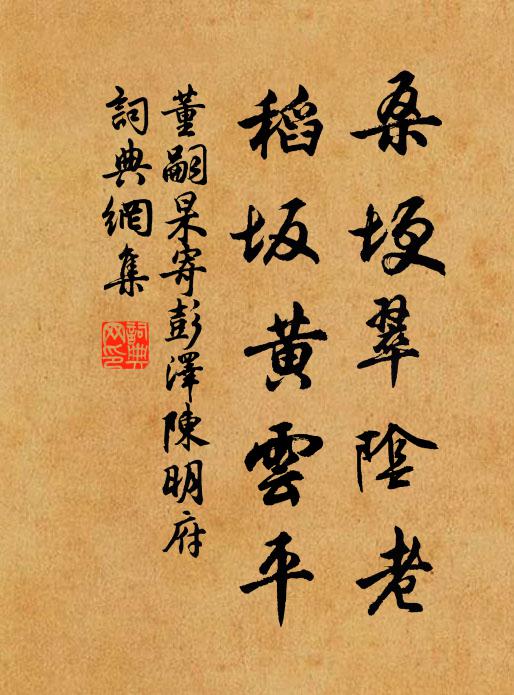 桑埂翠陰老
稻坂黃雲平
董嗣杲寄彭澤陳明府
詞典網集
詞典網印